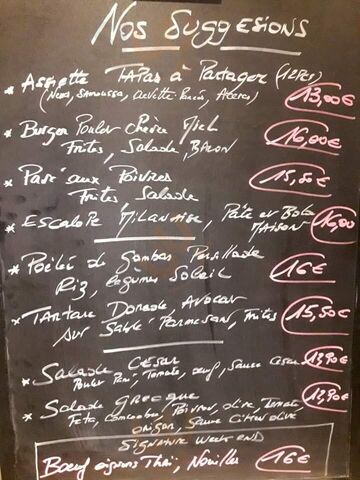 Nos Suggesions
* Assiette TAPAS à Partager (12PCS) 13,00€
(Nems, Samoussa, Crevette Panée, Acras)
* Burger Poulet Chèvre Miel 16,00€
Frites, Salade, Bacon
* Pavé aux Poivres 15,50€
Frites, Salade
* Escalope Milanaise, Pâte et Bolo 16,00
MAISON
* Poêlée de Gambas Persillade 16€
Riz, légumes Soleil
* TARTARE Dorade Avocat 15,50€
sur Sablé Parmesan, Frites
* Salade CÉSAR 13,90€
Poulet Pané, Tomate, oeuf, Sauce César
* Salade GRECQUE 12,90€
Feta, Concombre, Poivron, olive, Tomate
origan, Sauce Citron olive
SIGNATURE WEEK END
Boeuf oignons Thaï, Nouilles 16€